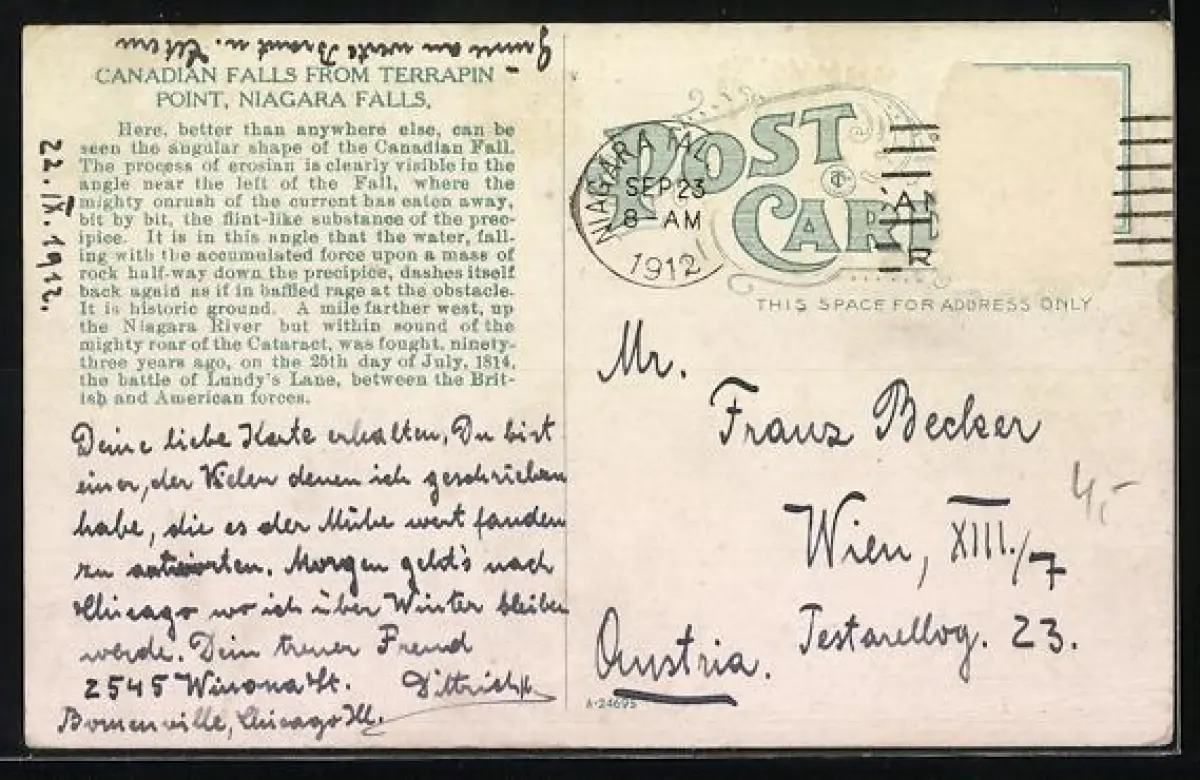 Grüsse an werte Braut u. Eltern
CANADIAN FALLS FROM TERRAPIN
POINT, NIAGARA FALLS.
Here, better than anywhere else, can be
seen the angular shape of the Canadian Fall.
The process of erosian is clearly visible in the
angle near the left of the Fall, where the
mighty onrush of the current has eaten away,
bit by bit, the flint-like substance of the prec-
ipice. It is in this angle that the water, fall-
ing with the accumulated force upon a mass of
rock half-way down the precipice, dashes itself
back again as if in baffled rage at the obstacle.
It is historic ground. A mile farther west, up
the Niagara River but within sound of the
mighty roar of the Cataract, was fought, ninety-
three years ago, on the 25th day of July, 1814,
the battle of Lundy's Lane, between the Brit-
ish and American forces.
22.IX.1912.
Deine liebe Karte erhalten, Du bist
einer, der Vielen denen ich geschrieben
habe, die es der Mühe wert fanden
zu antworten. Morgen geht's nach
Chicago wo ich über Winter bleiben
werde. Dein treuer Freund
2545 Winona St. Dittrich
Bowmanville, Chicago Ill.
POST
CARD
NIAGARA FAL
SEP 23
8- AM
1912
THIS SPACE FOR ADDRESS ONLY.
Mr.
Franz Becker
Wien, XIII./7
Testarellog. 23.
Austria.
4,-
A-24695